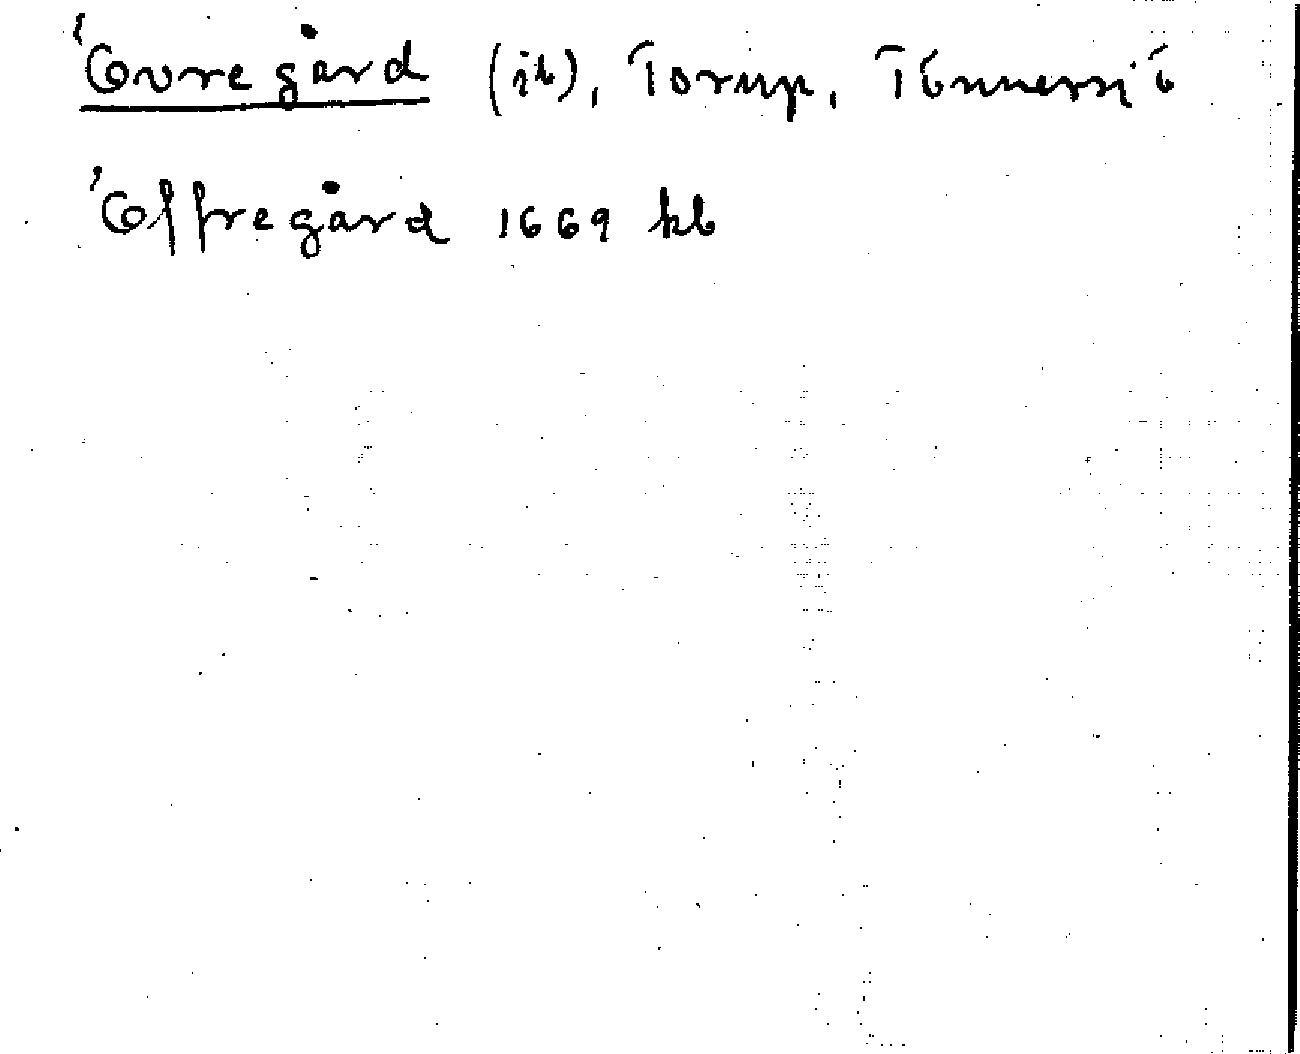 Övregård (ib), Torup, Tönnersjö
Öffregård 1669 kb